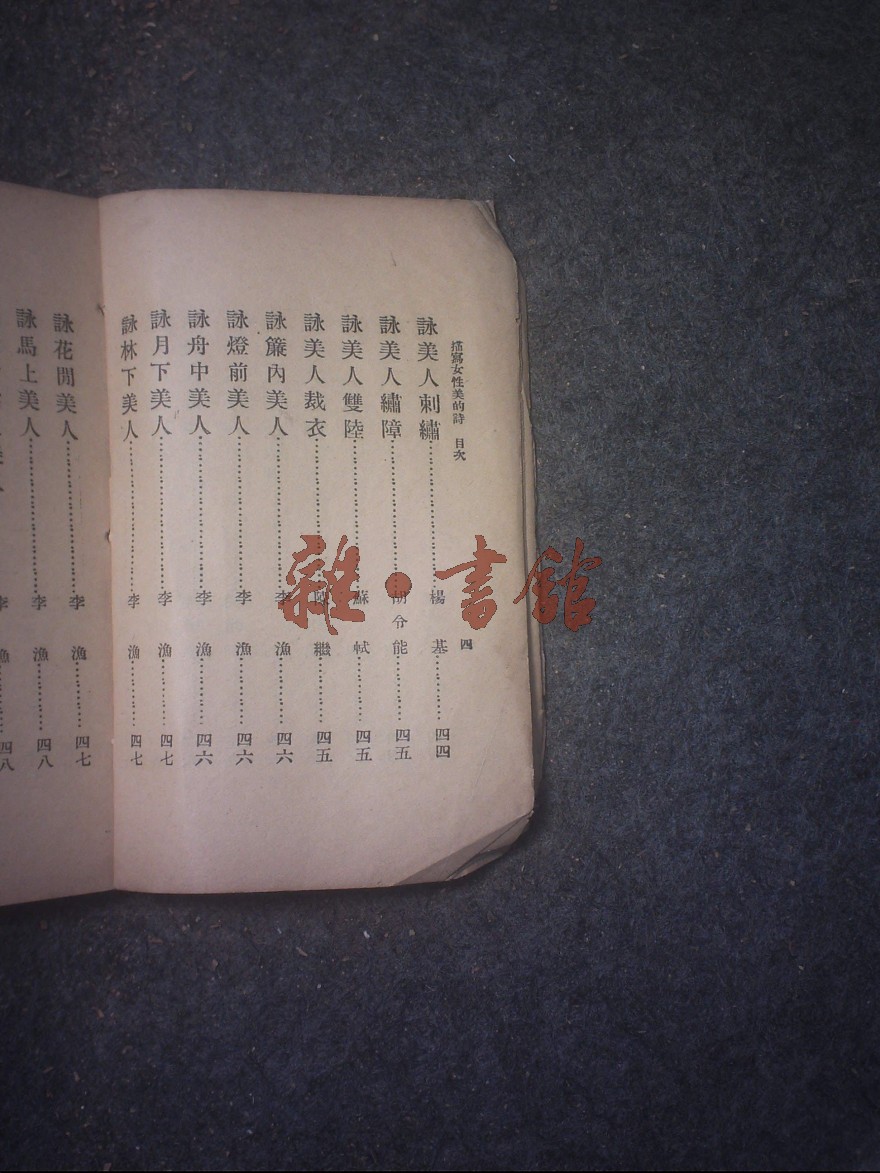 描寫女性美的詩 目次 四
詠美人刺繡 楊基 四四
詠美人繡障 胡令能 四五
詠美人雙陸 蘇軾 四五
詠美人裁衣 繼 四五
詠簾內美人 李漁 四六
詠燈前美人 李漁 四六
詠舟中美人 李漁 四六
詠月下美人 李漁 四七
詠林下美人 李漁 四七
詠花間美人 李漁 四七
詠馬上美人 李漁 四八
李漁 四八
雜·書館